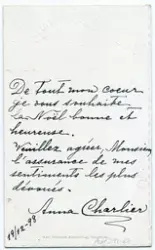 De tout mon coeur
je vous souhaite
la Noël bonne et
heureuse.
Veuillez agréer, Monsieur,
l'assurance de mes
sentiments les plus
dévoués.
Anna Charlier